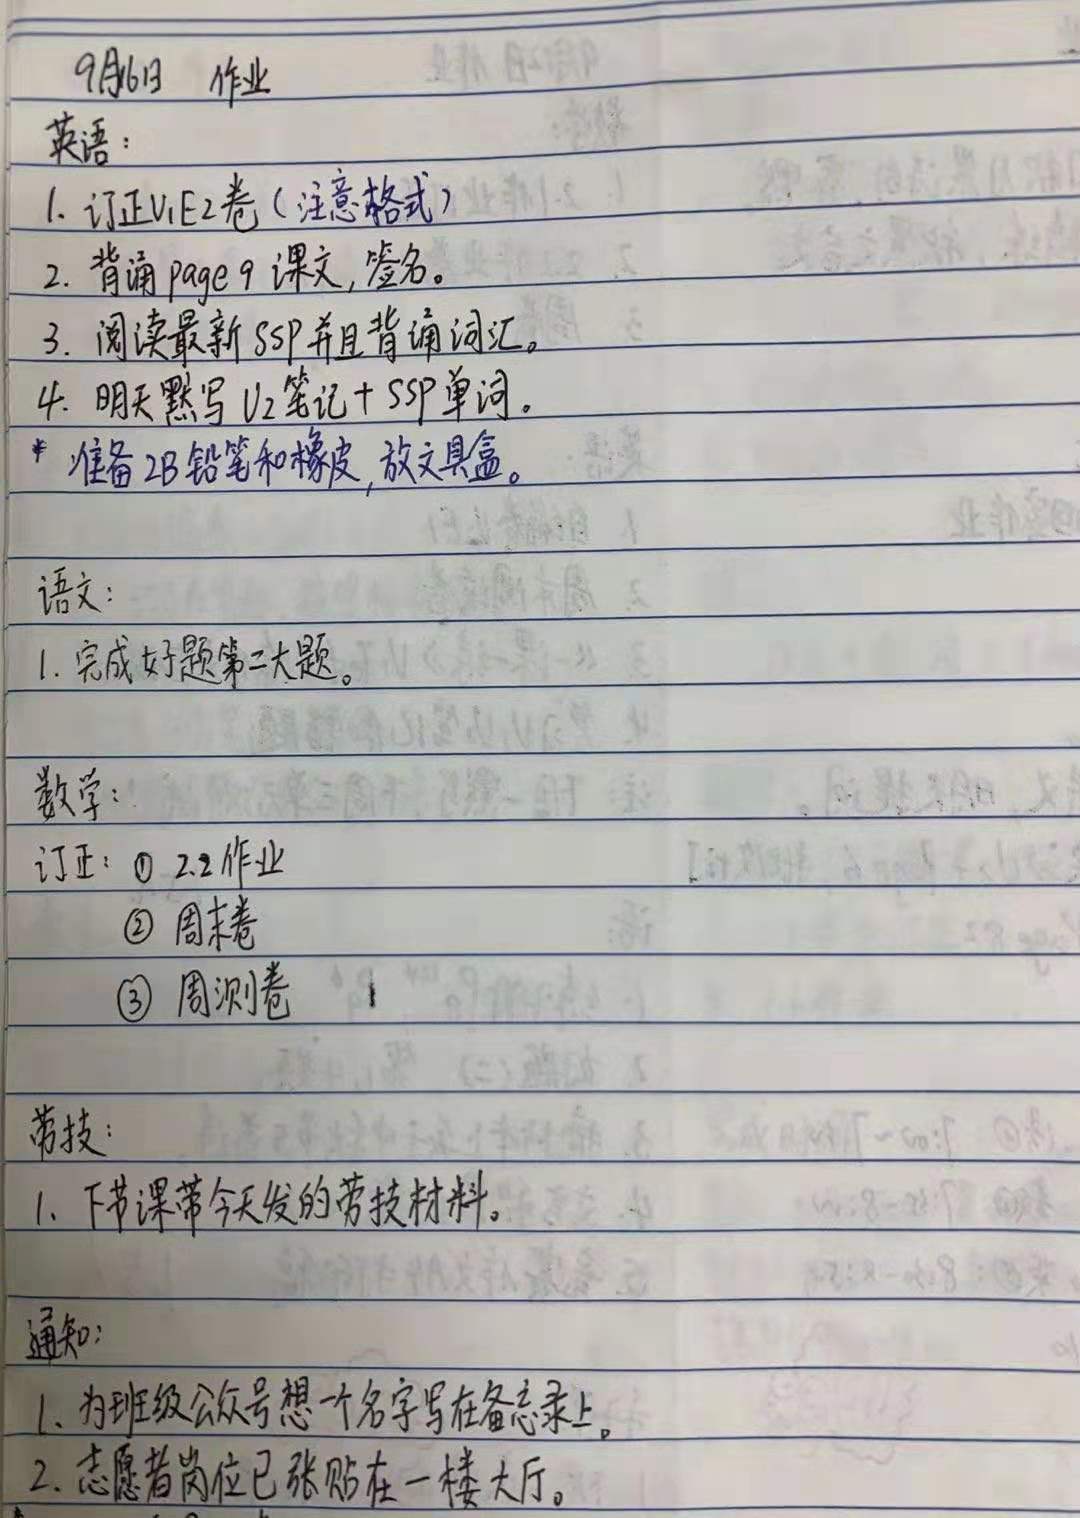 9月16日 作业
英语:
1. 订正U1E2卷(注意格式)
2. 背诵page9课文,签名。
3. 阅读最新SSP并且背诵词汇。
4. 明天默写U2笔记+SSP单词。
* 准备2B铅笔和橡皮,放文具盒。
语文:
1. 完成好题第二大题。
数学:
订正:① 2.2作业
② 周末卷
③ 周测卷
劳技:
1. 下节课带今天发的劳技材料。
通知:
1. 为班级公众号想一个名字写在备忘录上。
2. 志愿者岗位已张贴在一楼大厅。